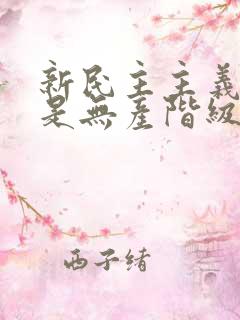 新民主主義
是無產階級
西子绪